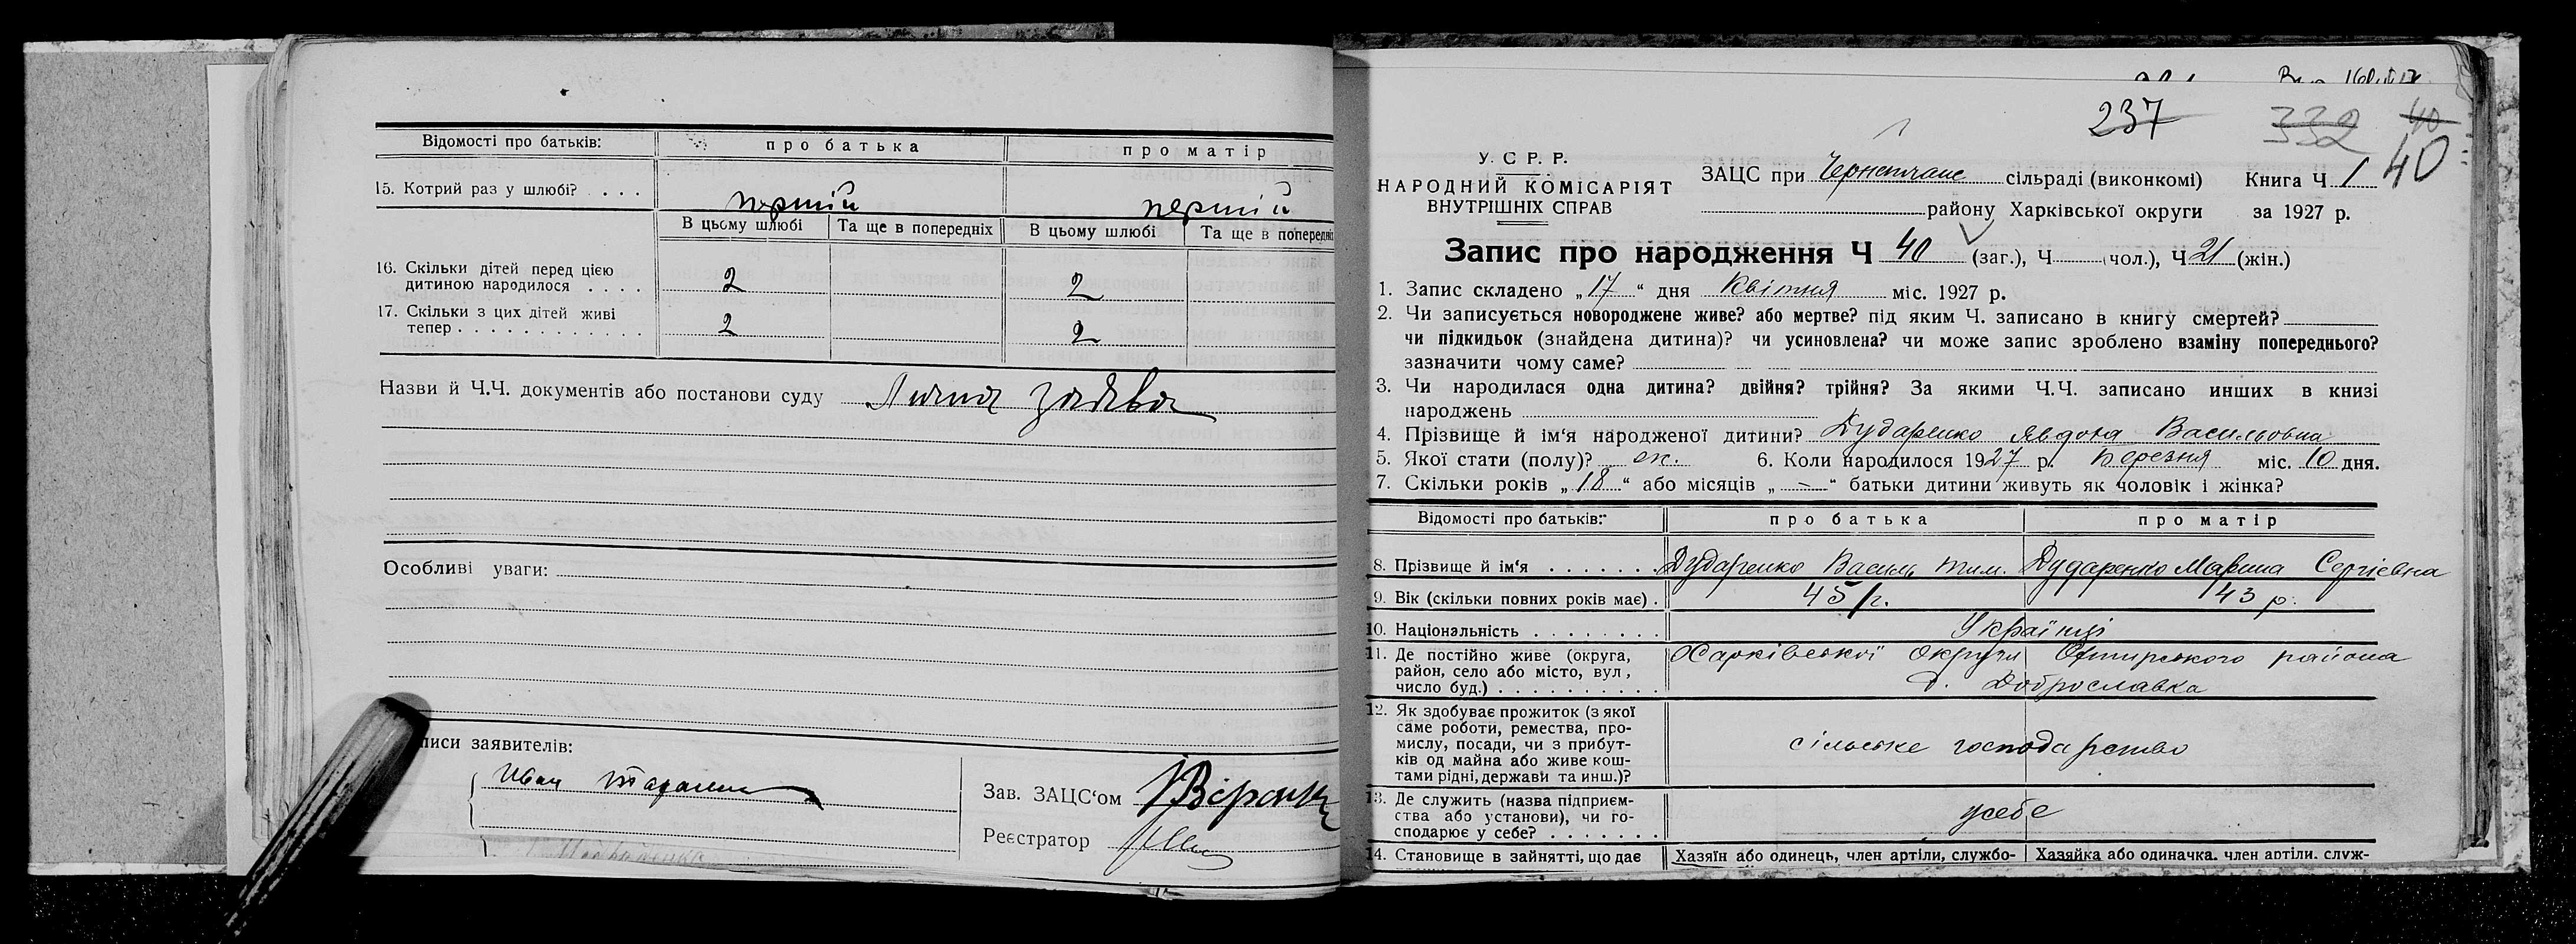 Відомості про батьків: про батька про матір
15. Котрий раз у шлюбі? . . . перший перший
В цьому шлюбі Та ще в попередніх В цьому шлюбі Та ще в попередніх
16. Скільки дітей перед цією
дитиною народилося . . . . 2 2
17. Скільки з цих дітей живі
тепер . . . . . . . . . . . . . 2 2
Назви й Ч.Ч. документів або постанови суду Лична заява
Особливі уваги:
писи заявителів:
Иван
Зав. ЗАЦС‘ом
Реєстратор
237 332 40
40
У. С Р. Р.
НАРОДНИЙ КОМІСАРІЯТ
ВНУТРІШНІХ СПРАВ
ЗАЦС при сільраді (виконкомі) Книга Ч 1
району Харківської округи за 1927 р.
Запис про народження Ч 40 (заг.), Ч (чол.), Ч 21 (жін.)
1. Запис складено „17“ дня Квітня міс. 1927 р.
2. Чи записується новороджене живе? або мертве? під яким Ч. записано в книгу смертей?
чи підкидьок (знайдена дитина)? чи усиновлена? чи може запис зроблено взаміну попереднього?
зазначити чому саме?
3. Чи народилася одна дитина? двійня? трійня? За якими Ч.Ч. записано инших в книзі
народжень
4. Прізвище й ім‘я народженої дитини? Дударенко Явдоха Васильовна
5. Якої стати (полу)? ж. 6. Коли народилося 1927 р. Березня міс. 10 дня.
7. Скільки років „18“ або місяців „-“ батьки дитини живуть як чоловік і жінка?
Відомості про батьків: про батька про матір
8. Прізвище й ім‘я . . . . . . . Дударенко Василь Тим. Дударенко Марина Сергієвна
9. Вік (скільки повних років має) . 45 р. 43 р.
10. Національність . . . . . . . . Українці
11. Де постійно живе (округа,
район, село або місто, вул,
число буд.) . . . . . . . . . .
Харківської Округи района
д. Доброславка
12. Як здобуває прожиток (з якої
саме роботи, ремества, про-
мислу, посади, чи з прибут-
ків од майна або живе кош-
тами рідні, держави та инш.)?
сільське господарство
13. Де служить (назва підприєм-
ства або установи), чи го-
сподарює у себе? . . . . . . .
усебе
14. Становище в зайнятті, що дає Хазяїн або одинець, член артіли, службо- Хазяйка або одиначка, член артіли, служ-